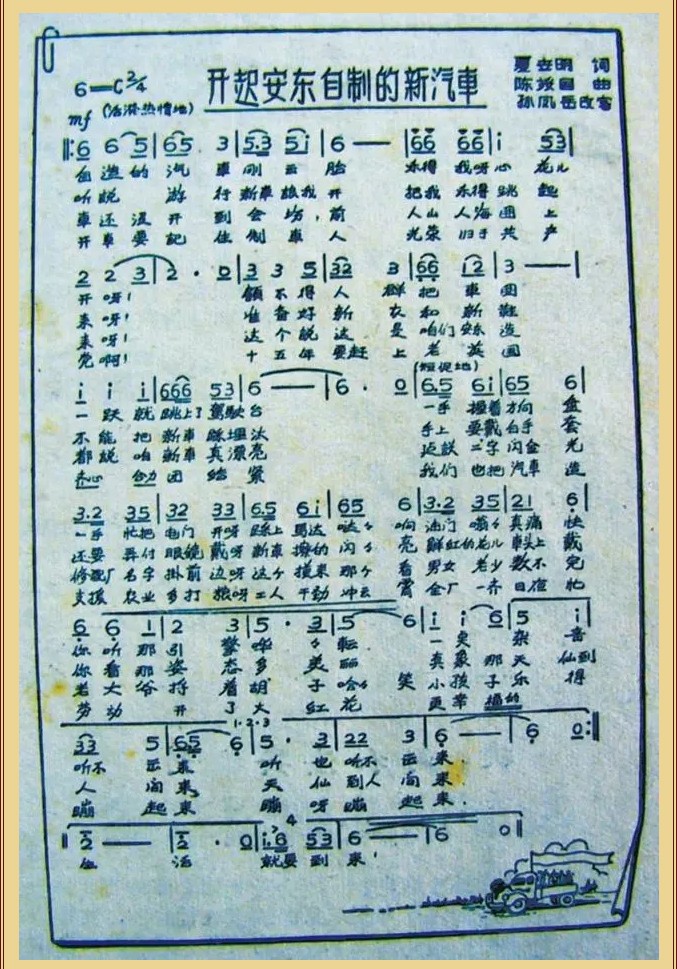 开起安东自制的新汽車
6=C 2/4
mf (活潑热情地)
夏世明 词
陈 曲
孙凤岳改写
‖: 6 6 5 | 65 3 | 5.3 5i | 6 — | 66 66 | i 53 |
自造的汽 車刚云胎 乐得我呀心花儿
听説 游行新車 我开 把我乐得跳起
車还没开到会坊,前 人山人海困上
开車要記住制車人 光荣归于共产
2 2 3 | 2 · 0 | 3 3 5 | 32 3 | 66 i2 | 3 — |
开呀! 顧不得人群把車困
来呀! 准备好新衣和新鞋
来呀! 这个説这是咱们安东造
党啊! 十五年要赶上老英囯
(短促地)
i i i | 666 53 | 6 — | 6 · 0 | 6.5 6i | 65 6 |
一跃就跳上了駕駛台 一手握着方向盘
不能把新車踩埋汰 手上要戴白手套
都説咱新車真漂亮 跃 二字闪金光
齐心合力团結紧 我们也把汽車造
3.2 35 | 32 33 | 6.5 6i | 65 6 | 3.2 35 | 21 6 |
一手忙把电门开呀踩上馬达哒々响油门 真痛快
还要弄付眼鏡戴呀新車 的闪々亮鮮紅的花儿車头上戴
修配厂名字掛前边呀这个摸来那个看男女老少数不完
支援农业多打粮呀工人干劲冲云霄全厂一齐日夜忙
6 6 i | 2 3 | 5 · 3 | 5 6 | i i 6 | 5 i |
你听那引擎嘩々轉 笑 杂音
你看那姿态多美丽 真象那天仙到
老大爷捋着胡子哈々笑小孩子得
劳动开了大红花 更幸福的
1·2·3
33 5 | 65 6 | 5 · 3 | 22 3 | 6 — | 6 0 :‖
听不云来 听也听不云来.
人间来 天仙到人间来.
蹦起来 蹦呀蹦起来.
4
‖ 2 — | 2 · 0 | i.6 53 | 6 — | 6 0 ‖
生活 就要到来!